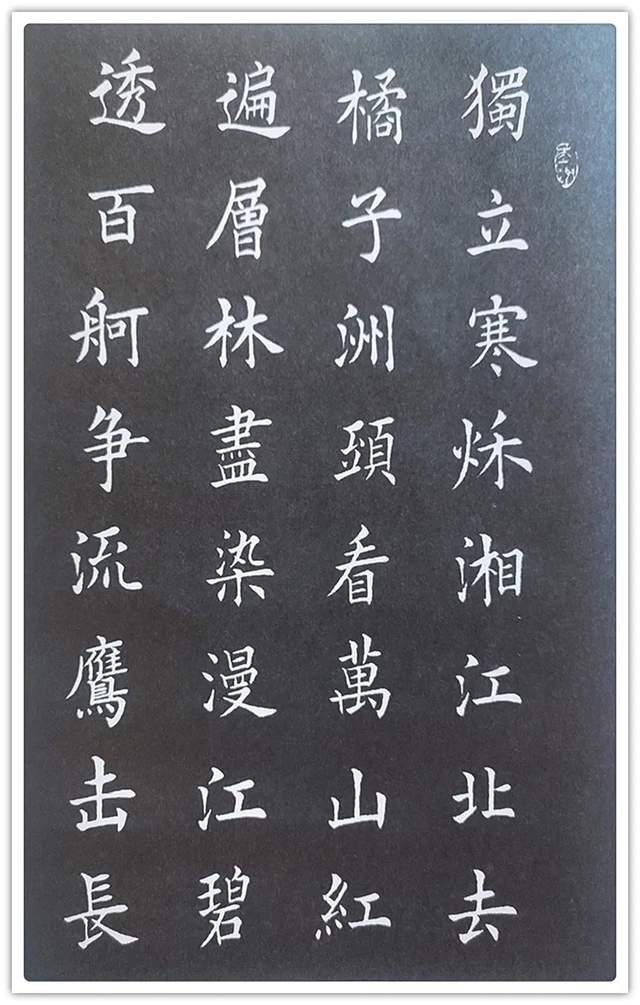 獨立寒烁湘江北去
橘子洲頭看萬山紅
遍層林盡染漫江碧
透百舸争流鷹击長